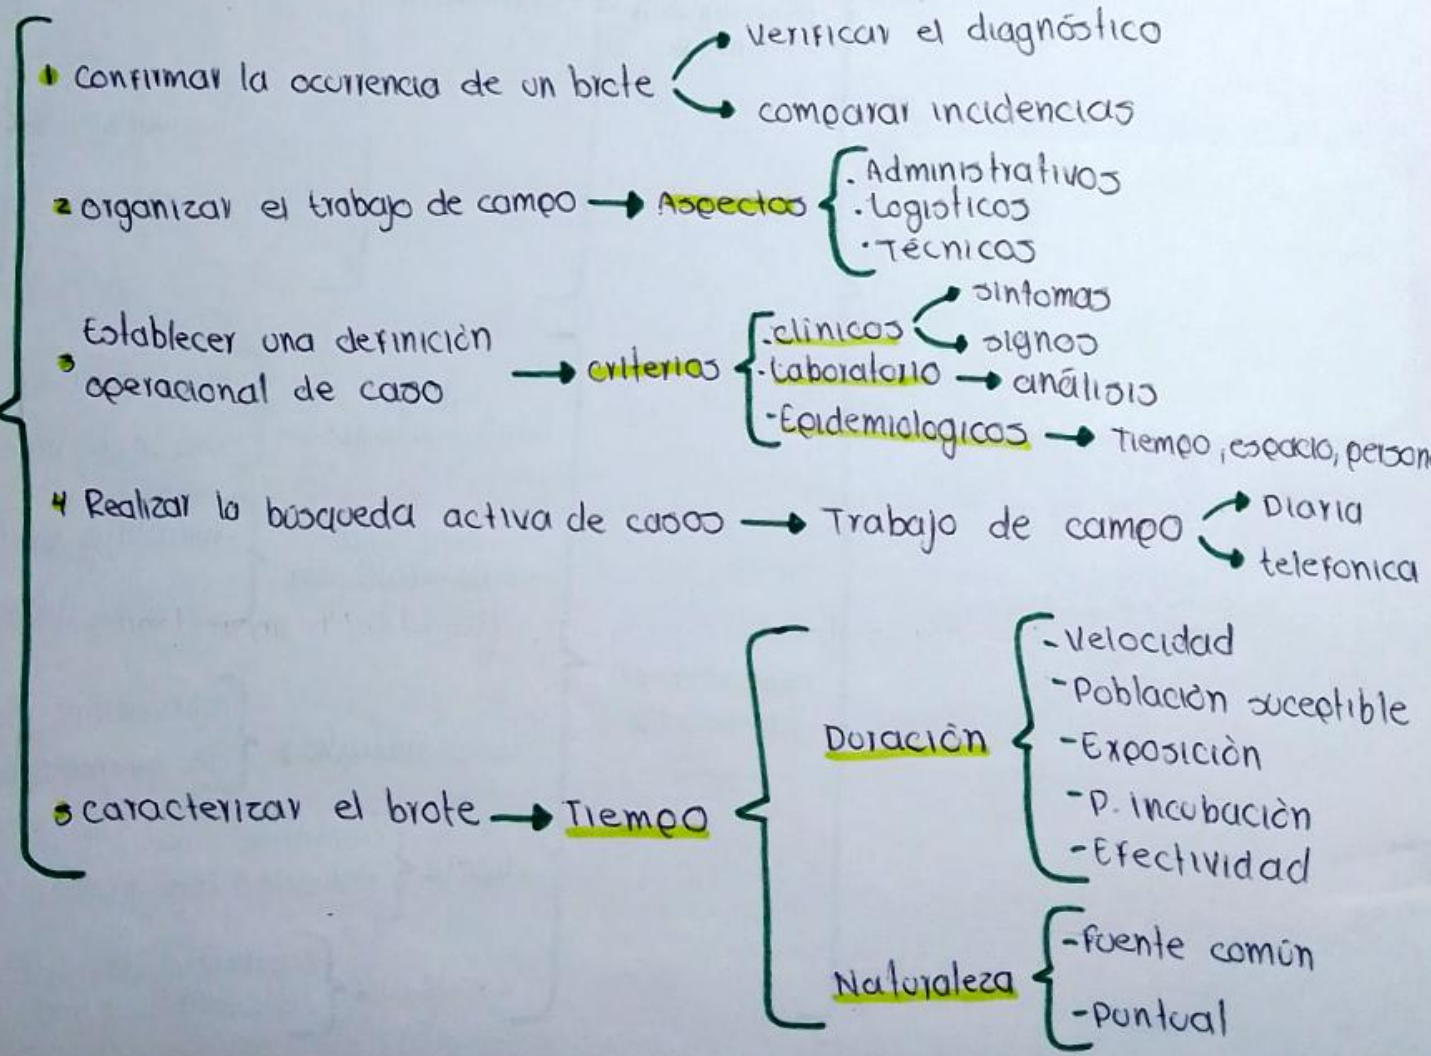 1 Confirmar la ocurrencia de un brote
verificar el diagnóstico
comparar incidencias
2 organizar el trabajo de campo → Aspectos
. Administrativos
. Logisticos
. Técnicos
3 Establecer una definición
operacional de caso
→ criterios
. clínicos
sintomas
signos
. Laboratorio → análisis
- Epidemiologicos → Tiempo, espacio, person
4 Realizar la búsqueda activa de casos → Trabajo de campo
Diaria
telefonica
5 caracterizar el brote → Tiempo
Duración
- Velocidad
- Población suceptible
- Exposición
- P. incubación
- Efectividad
Naturaleza
- fuente común
- puntual